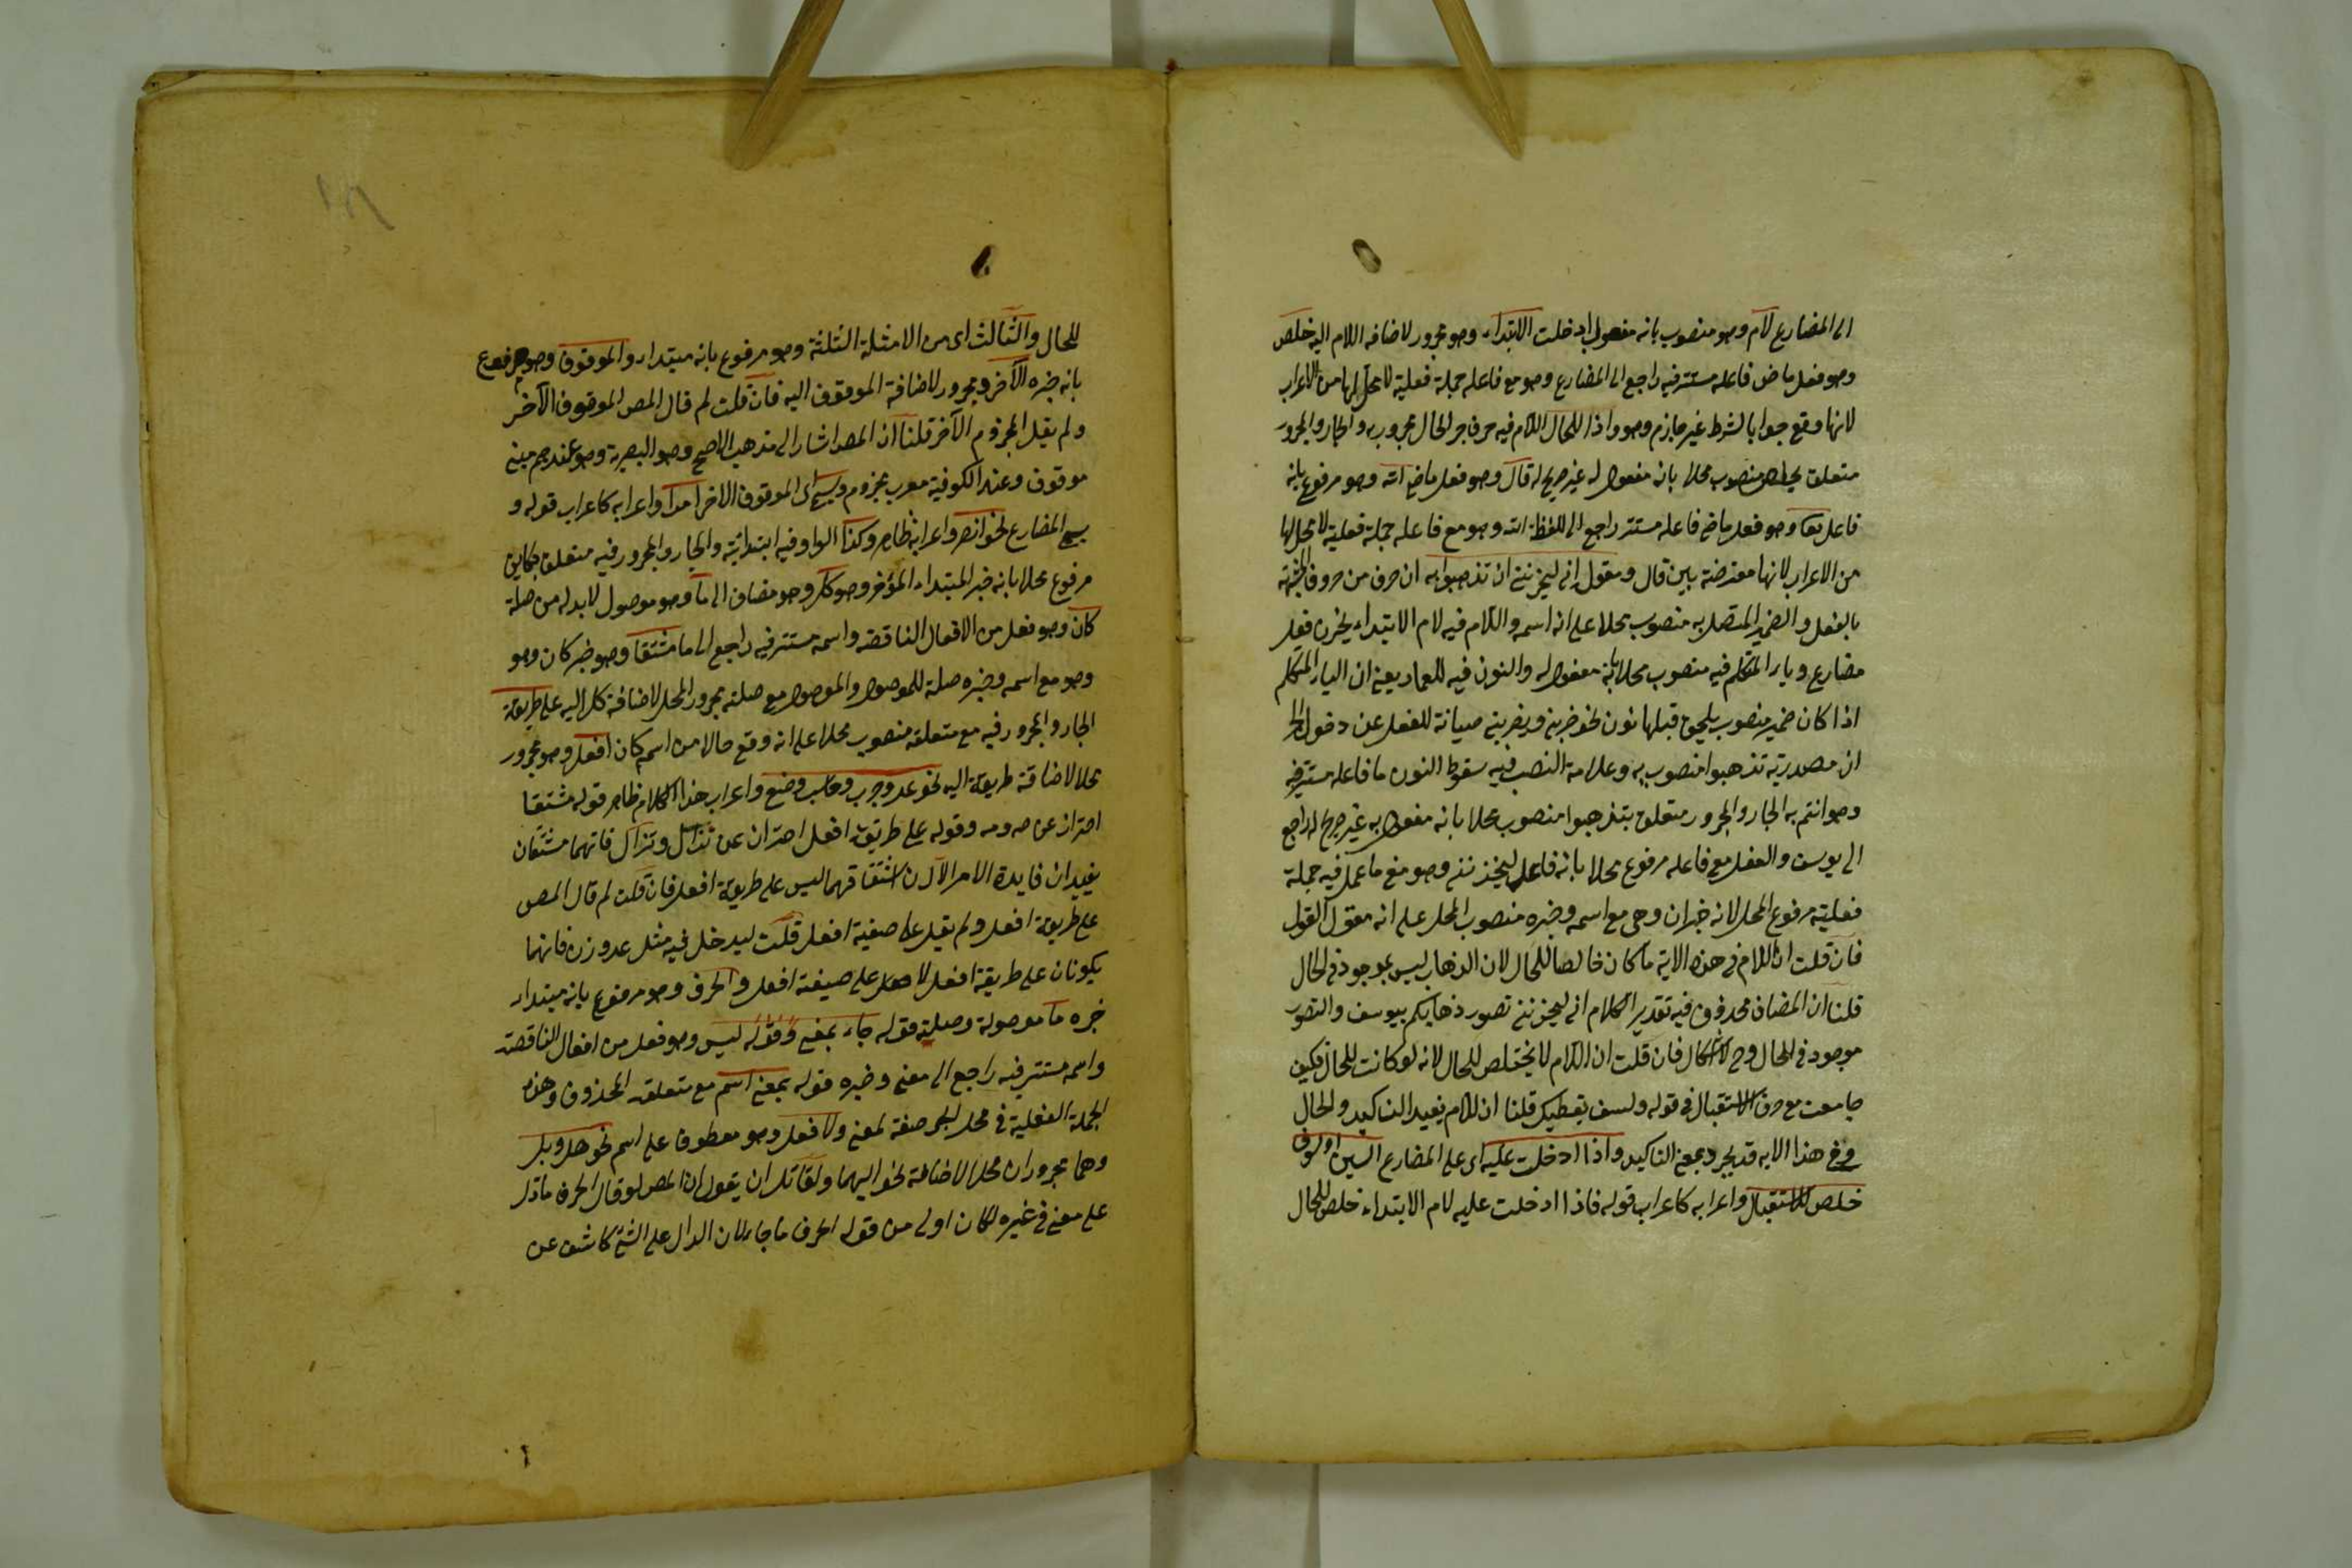 الى المضارع لام وهو منصوب بانه مفعول ادخلت الابتداء وهو مجرور لاضافه اللام اليه خلص
وهو فعل ماض فاعله مستتر فيه راجع الى المضارع وهو مع فاعله جملة فعلية لا محل لها من الاعراب
لانها وقع جوابا لشرط غير جازم وهو واذا للحال اللام فيه حرف جر الحال مجرور به والجار والمجرور
متعلق بخلص منصوب محلا بانه مفعول له غير صريح له قال وهو فعل ماض الله وهو مرفوع بانه
فاعل تعا وهو فعل ماض فاعله مستتر راجع الى اللفظة الله وهو مع فاعله جملة فعلية لا محل لها
من الاعراب لانها معترضة بين قال ومقول اني ليحزنني ان تذهبوا به ان حرف من حروف المشبهة
بالفعل والضمير المتصل به منصوب محلا على انه اسمه واللام فيه لام الابتداء يحزن فعل
مضارع وياء المتكلم فيه منصوب محلا بانه مفعول له والنون فيه للعماد يعني ان الياء المتكلم
اذا كان ضمير منصوب يلحق قبلها نون نحو ضربني ويضربني صيانة للفعل عن دخول الجر
ان مصدرية تذهبوا منصوب به وعلامة النصب فيه سقوط النون ما فاعله مستتر فيه
وهو انتم به الجار والمجرور متعلق بتذهبوا منصوب محلا بانه مفعول به غير صريح له راجع
الى يوسف والفعل مع فاعله مرفوع محلا بانه فاعل ليحزنني وهو مع ما عمل فيه جملة
فعلية مرفوع المحل لانه خبران وهى مع اسمه وخبره منصوب المحل على انه مقول القول
فان قلت ان اللام في هذه الاية ما كان خالصا للحال لان الذهاب ليس بموجود في الحال
قلنا ان المضاف محذوف فيه تقدير الكلام اني ليحزنني تصور ذهابكم بيوسف والتصور
موجود في الحال وح لا اشكال فان قلت ان اللام لا يختلص للحال لانه لو كانت للحال فكيف
جامعت مع حرف الاستقبال في قوله ولسوف يعطيك قلنا ان اللام يفيد التاكيد والحال
وفي هذا الايه قد يجرد بمعنى التاكيد واذا ادخلت عليه اى على المضارع السين او سوف
خلص للاستقبال واعرابه كاعراب قوله فاذا ادخلت عليه لام الابتداء خلص للحال
للحال والثالث اى من الامثلة الثلثة وهو مرفوع بانه مبتداء والموقوف وهو مرفوع
بانه خبره الآخر ومجرور لاضافة الموقوف اليه فان قلت لم قال المص الموقوف الآخر
ولم يقل المجزوم الآخر قلنا ان المص اشار الى مذهب الاصح وهو البصرية وهو عندهم مبني
موقوف وعند الكوفية معرب مجزوم ويسمى اى الموقوف الاخر امرا واعرابه كاعراب قوله و
يسمى المضارع نحو انصر واعرابه ظاهر وكذا الواو فيه ابتدائية والجار والمجرور فيه متعلق بكاين
مرفوع محلا بانه خبر المبتداء المؤخر وهو كل وهو مضاف الى ما وهو موصول لابد له من صلة
كان وهو فعل من الافعال الناقصه واسمه مستتر فيه راجع الى ما مشتقا وهو خبر كان وهو
وهو مع اسمه وخبره صلة للموصول والموصول مع صلته مجرور المحل لاضافة كل اليه على طريقة
الجار والمجرور فيه مع متعلقه منصوب محلا على انه وقع حالا من اسم كان افعل وهو مجرور
محلا لاضافة طريقة اليه نحو عد وجرب وحاسب وضع واعراب هذا الكلام ظاهر قوله مشتقا
احتراز عن صه ومه وقوله على طريقة افعل احتراز عن نزال وتراك فانهما مشتقان
يفيدان فايدة الامر الا ان اشتقاقهما ليس على طريقة افعل فان قلت لم قال المص
على طريقة افعل ولم يقل على صيغة افعل قلت ليدخل فيه مثل عد وزن فانهما
يكونان على طريقة افعل لا على صيغة افعل والحرف وهو مرفوع بانه مبتداء
خبره ما موصولة وصلته قوله جاء بمعنى وقوله ليس وهو فعل من افعال الناقصة
واسمه مستتر فيه راجع الى معنى وخبره قوله بمعنى اسم مع متعلقه المحذوف وهذه
الجملة الفعلية في محل الجر صفة لمعنى ولا فعل وهو معطوف على اسم نحو هل وبل
وهما مجروران محلا لاضافة نحو اليهما ولقائل ان يقول ان المص لو قال الحرف ما دل
على معنى في غيره لكان اولى من قوله الحرف ما جاء لان الدال على الشئ كاشف عن